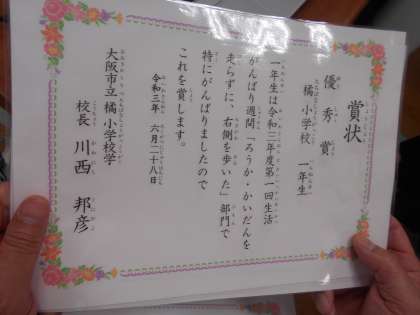 賞状
優秀賞
橘小学校 一年生
一年生は令和三年度第一回生活
がんばり週間「ろうか・かいだんを
走らずに、右側を歩いた」部門で
特にがんばりましたので
これを賞します。
令和三年 六月二十八日
大阪市立 橘 小学校
校長 川西 邦彦